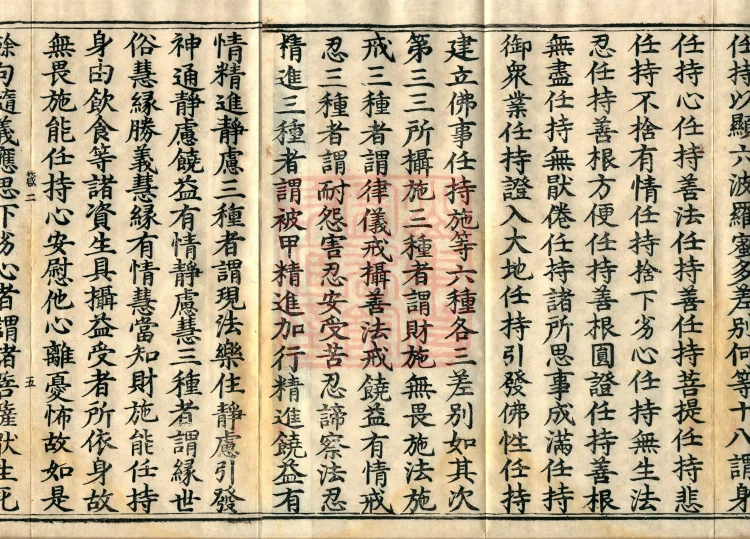 任持以顯六波羅蜜多差別何等十八謂身
任持心任持善法任持善任持菩提任持悲
任持不捨有情任持捨下劣心任持無生法
忍任持善根方便任持善根圓證任持善根
無盡任持無猒倦任持諸所思事成滿任持
御衆業任持證入大地任持引發佛性任持
建立佛事任持施等六種各三差別如其次
第三三所攝施三種者謂財施無畏施法施
戒三種者謂律儀戒攝善法戒饒益有情戒
忍三種者謂耐怨害忍安受苦忍諦察法忍
精進三種者謂被甲精進加行精進饒益有
情精進靜慮三種者謂現法樂住靜慮引發
神通靜慮饒益有情靜慮慧三種者謂緣世
俗慧緣勝義慧緣有情慧當知財施能任持
身由飲食等諸資生具攝益受者所依身故
無畏施能任持心安慰他心離憂怖故如是
二
五
餘句隨義應思下劣心者謂諸菩薩猒生死